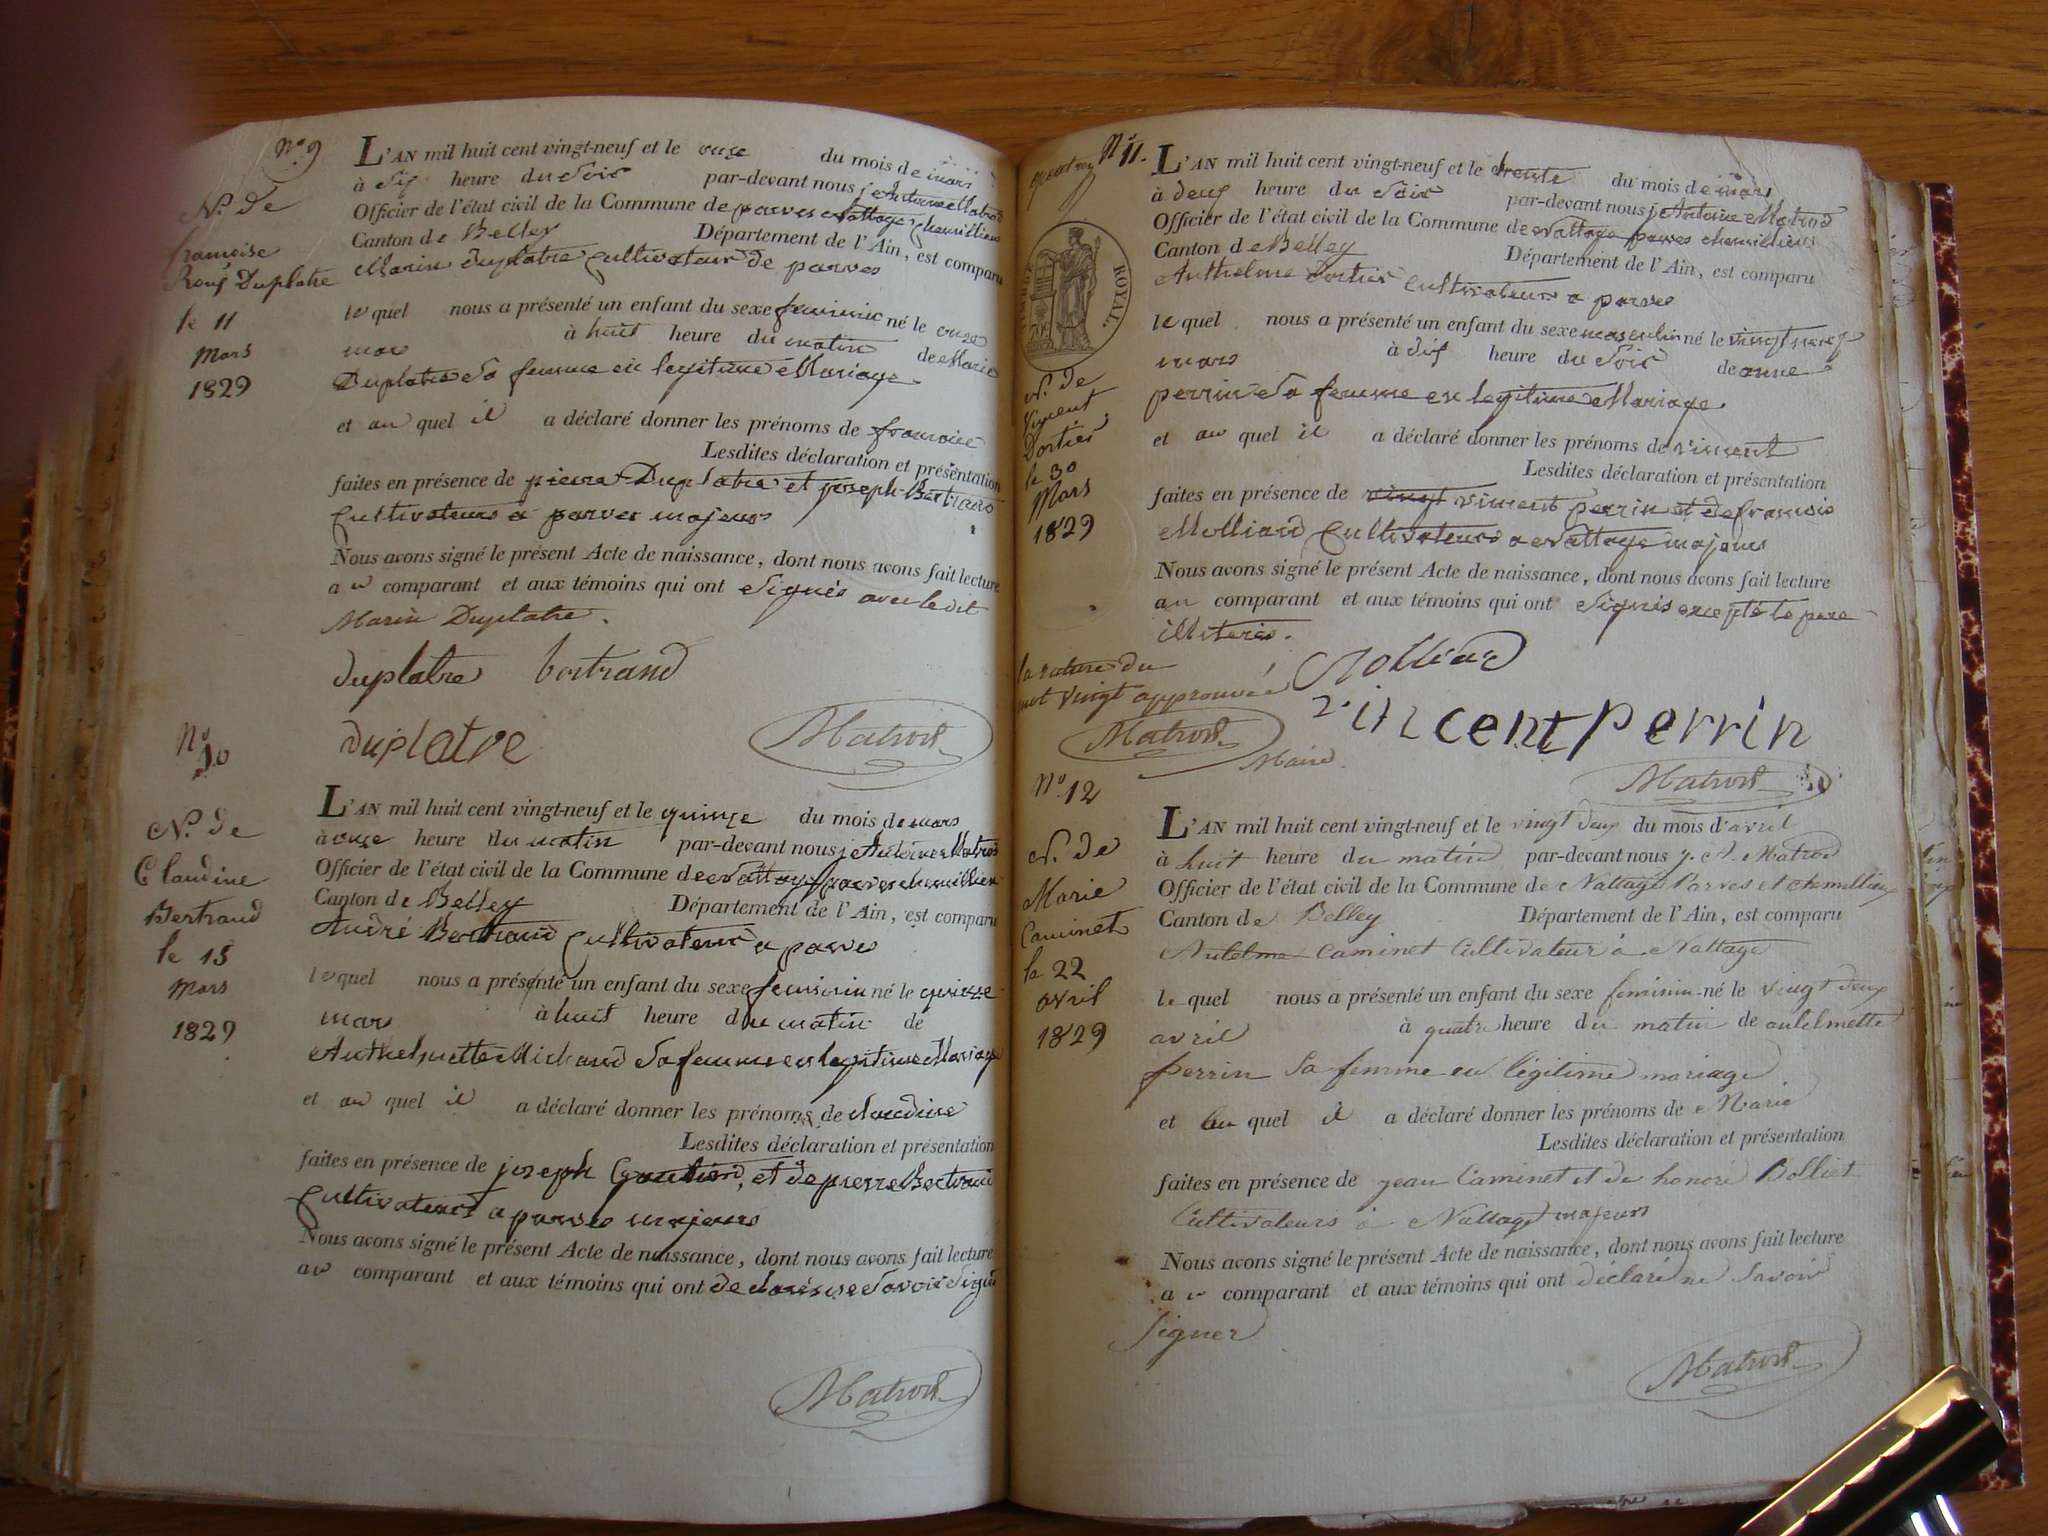 N.º 9
N. de
françoise
Rouf Duplatre
le 11
Mars
1829
L'AN mil huit cent vingt-neuf et le onze du mois de mars
à six heure du Soir par-devant nous j. Antoine Matrod
Officier de l'état civil de la Commune de parves Nattage chemilieu
Canton de Belley Département de l'Ain, est comparu
Marin Duplatre Cultivateur de parves
lequel nous a présenté un enfant du sexe feminin né le onze
mars à huit heure du matin de Marie
Duplatre Sa femme en legitime Mariage
et au quel il a déclaré donner les prénoms de francoise
Lesdites déclaration et présentation
faites en présence de pierre Duplatre et joseph Bertrand
Cultivateurs a parves majeurs
Nous avons signé le présent Acte de naissance, dont nous avons fait lecture
au comparant et aux témoins qui ont Signés avec le dit
Marin Duplatre.
duplatre bertrand
duplatre Matrod
N.º 10
N. de
Claudine
Bertrand
le 15
Mars
1829
L'AN mil huit cent vingt-neuf et le quinze du mois de mars
à onze heure du matin par-devant nous j. Antoine Matrod
Officier de l'état civil de la Commune de Nattage parves chemillieu
Canton de Belley Département de l'Ain, est comparu
André Bertrand Cultivateur a parves
lequel nous a présenté un enfant du sexe feminin né le quinze
mars à huit heure du matin de
Anthelmette Michaud Sa femme en legitime Mariage
et au quel il a déclaré donner les prénoms de claudine
Lesdites déclaration et présentation
faites en présence de joseph et de pierre Bertrand
Cultivateurs a parves majeurs
Nous avons signé le présent Acte de naissance, dont nous avons fait lecture
au comparant et aux témoins qui ont declarés ne Savoir Signer
Matrod
N.º 11.
ROYAL.
N. de
Vincent
Dortier
le 30
Mars
1829
L'AN mil huit cent vingt-neuf et le trente du mois de mars
à deux heure du Soir par-devant nous j. Antoine Matrod
Officier de l'état civil de la Commune de Nattage parves chemillieu
Canton de Belley Département de l'Ain, est comparu
Anthelme Dortier Cultivateur a parves
lequel nous a présenté un enfant du sexe masculin né le vingt neuf
mars à dix heure du Soir de anne
perrin Sa femme en legitime Mariage
et au quel il a déclaré donner les prénoms de vincent
Lesdites déclaration et présentation
faites en présence de vingt vincent perrin et de francois
Molliard Cultivateurs a Nattage majeurs
Nous avons signé le présent Acte de naissance, dont nous avons fait lecture
au comparant et aux témoins qui ont Signés excepté le pere
illiteré.
la rature du
mot vingt approuvée
Matrod
Maire
Molliard
vincent perrin
Matrod
N.º 12
N. de
Marie
Caminet
le 22
avril
1829
L'AN mil huit cent vingt-neuf et le vingt deux du mois d'avril
à huit heure du matin par-devant nous j. A. Matrod
Officier de l'état civil de la Commune de Nattage Parves et chemillieux
Canton de Belley Département de l'Ain, est comparu
Antelme Caminet Cultivateur à Nattage
lequel nous a présenté un enfant du sexe feminin né le vingt deux
avril à quatre heure du matin de antelmette
perrin Sa femme en légitime mariage
et au quel il a déclaré donner les prénoms de Marie
Lesdites déclaration et présentation
faites en présence de jean Caminet et de honoré Bolliet
Cultivateurs à Nattage majeurs
Nous avons signé le présent Acte de naissance, dont nous avons fait lecture
au comparant et aux témoins qui ont déclaré ne Savoir
Signer
Matrod